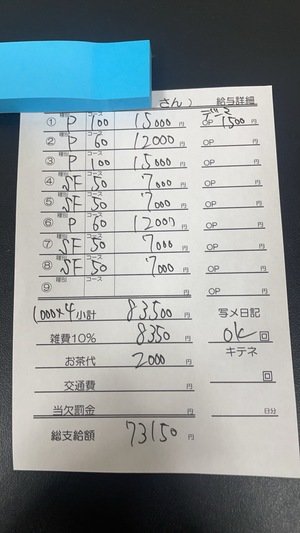 さん） 給与詳細
① 種別 P コース 100 15000 円 OP 1500 円
② 種別 P コース 60 12000 円 OP 円
③ 種別 P コース 100 15000 円 OP 円
④ 種別 SF コース 50 7000 円 OP 円
⑤ 種別 SF コース 50 7000 円 OP 円
⑥ 種別 P コース 60 12000 円 OP 円
⑦ 種別 SF コース 50 7000 円 OP 円
⑧ 種別 SF コース 50 7000 円 OP 円
⑨ 種別 コース 円 OP 円
1000×4 小計 83500 円 写メ日記
雑費10% 8350 円 OK 回
お茶代 2000 円 キテネ
交通費 円 回
当欠罰金 円 日分
総支給額 73150 円